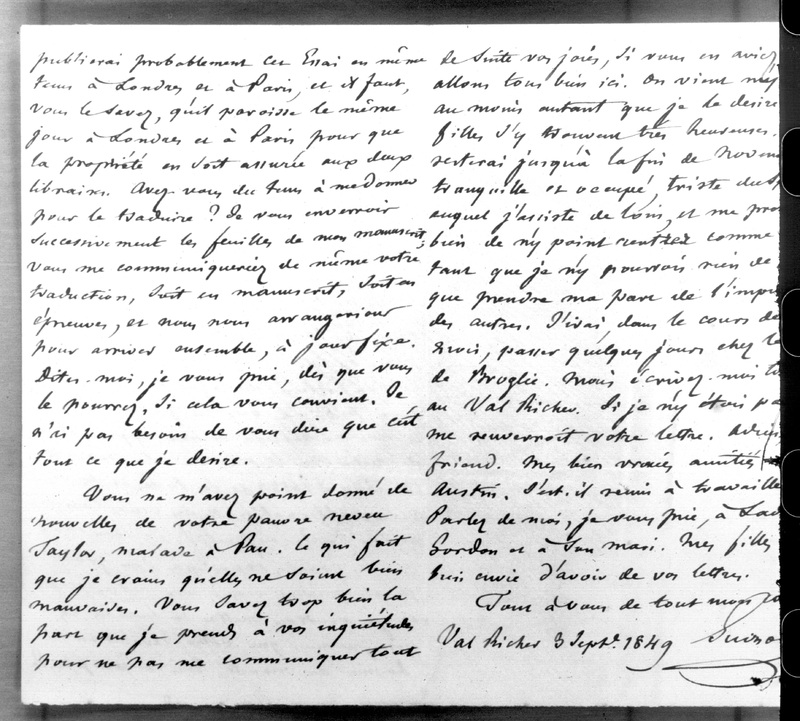 publierai probablement cet Essai en même
tems à Londres et à Paris, et il faut,
vous le savez, qu'il paroisse le même
jour à Londres et à Paris pour que
la propriété en soit assurée aux deux
libraires. Avez-vous du tems à me donner
pour le traduire? Je vous enverrois
successivement les feuilles de mon manuscrit;
vous me communiqueriez de même votre
traduction, soit en manuscrit, soit en
épreuves, et nous nous arrangerions
pour arriver ensemble, à jour fixe.
Dites-moi, je vous prie, dès que vous
le pourrez, si cela vous convient. Je
n'ai pas besoin de vous dire que c'est
tout ce que je desire.
Vous ne m'avez point donné de
nouvelles de votre pauvre neveu
Taylor, malade à Pau. Ce qui fait
que je crains qu'elles ne soient bien
mauvaises. Vous savez trop bien la
part que je prends à vos inquiétudes
pour ne pas me communiquer tout
de suite vos joies, si vous en aviez.
allons tous bien ici. On vient me
au moins autant que je le desire
filles s'y trouvent très heureuses.
resterai jusqu'à la fin de Novem
tranquille et occupé, triste du sp
auquel j'assiste de loin, et me pro
bien de n'y point rentrer comme
tant que je n'y pourrois rien de
que prendre ma part de l'impu
des autres. J'irai, dans le cours de
mois, passer quelques jours chez le
de Broglie. Mais écrivez-moi to
au Val Richer. Si je n'y étois pa
me renverroit votre lettre. Adieu
friend. Mes bien vraies amitiés
Austin. S'est-il remis à travaille
Parlez de moi, je vous prie, à Lad
Gordon et à son mari. Mes filles
bien envie d'avoir de vos lettres.
Tout à vous de tout mon
Val Richer 3 Sept. 1849 Guizo